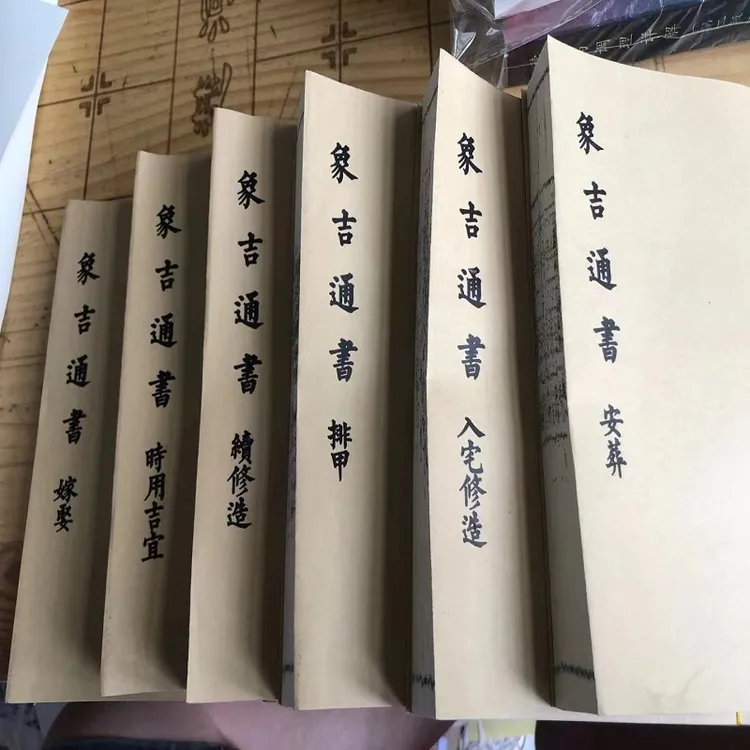 象吉通書 嫁娶
象吉通書 時用吉宜
象吉通書 續修造
象吉通書 排甲
象吉通書 入宅修造
象吉通書 安葬